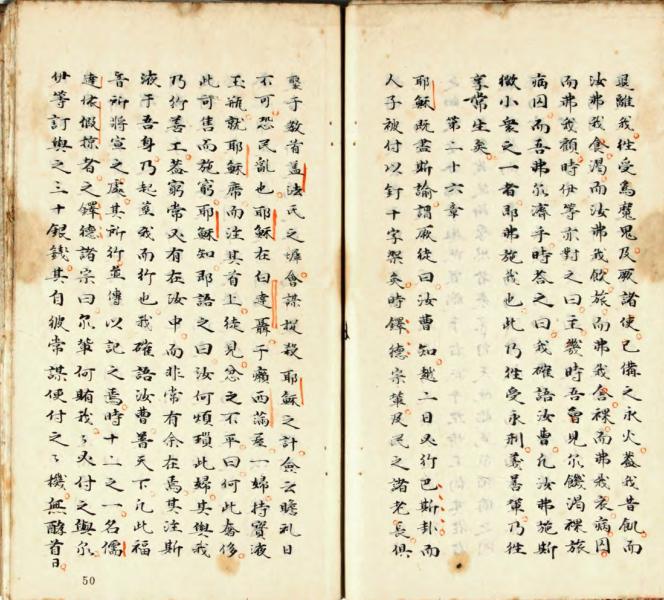 退離我徃受為魔鬼及厥諸使已備之永火葢我昔飢而
汝弗我食渴而汝弗我飲旅而弗我舍裸而弗我衣病囚
而弗我顧時伊等亦對之曰主幾時吾曾見尔饑渴裸旅
病囚而吾弗尔濟乎時荅之曰我確語汝曹凢汝弗施斯
微小衆之一者即弗施我也此乃徃受永刑義善輩乃徃
享常生矣
第二十六章
耶穌既盡斯諭謂厥徒曰汝曹知越二日又行巴斯卦而
人子被付以釘十字架矣時鐸德宗輩及民之諸老長俱
聚于教首葢法氏之墀會謀捉殺耶穌之計僉云瞻礼日
不可恐民亂也耶穌在伯達聶于癩西滿家一婦持寳液
玉瓶就耶穌席而注其首上徒見忿之不平曰何此奢侈
此可售而施窮耶穌知即語之曰汝何煩瑣此婦其與我
乃行善工葢窮常又有在汝中而非常有余在焉其注斯
液于吾身乃起塟我而行也我確語汝曹普天下凢此福
音所將宣之處其所行並傳以記之焉時十二之一名儒
達依假掠者之鐸德諸宗曰尔輩何賄我々又付之與尔
伊等訂與之三十銀錢其自彼常謀便付之々機無酵首日
50